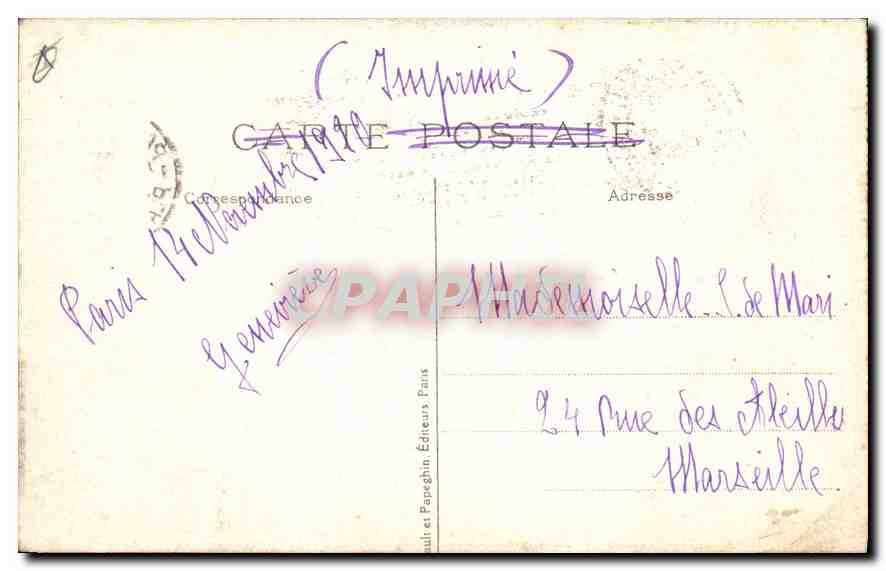 (Imprimé)
CARTE POSTALE
Correspondance
Adresse
Paris 14 Novembre
Geneviève
CPAPHIL
Mademoiselle S. de Mari
24 rue des Abeilles
Marseille
ult et Papeghin, Éditeurs, Paris